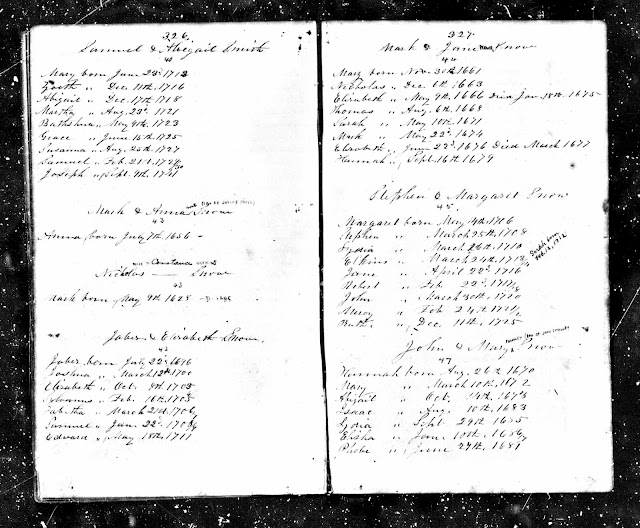 326.
Samuel & Abigail Smith
42
Mary born June 23d 1713
Zoeth " Dec. 11th 1716
Abigail " Dec. 17th 1718
Martha " Aug. 23d 1721
Bathshua " May 8th 1723
Grace " June 15th 1725
Susanna " Aug. 25th 1727
Samuel " Feb.
Joseph " Sept. 9th 1731
Mark & Anna Snow
43
Anna, born July 7th 1656 -
Constance
Nicholas — Snow
43
Mark born May 9th 1628
Jabez & Elizabeth Snow
43
Jabez born July 22d 1696
Joshua " March 12th 1700
Elizabeth " Oct. 9th
Sylvanus " Feb. 16th
Tabitha " March 21st 1706
Samuel " Jan. 22d
Edward " May 18th 1711
327.
Mark & Jane Snow
44
Mary born Nov. 30th 1661
Nicholas " Dec. 6th 1663
Elizabeth " May 9th 1666 Died Jan. 18th 1675
Thomas " Aug. 6th 1668
Sarah " May 10th 1671
Mark " May 22d 1674
Elizabeth " June 22d 1676 Died March 1677
Hannah " Sept. 16th 1679
Stephen & Margaret Snow
45
Margaret born May 14th 1706
Stephen " March 25th 1708
Lydia " March 26th 1710
March 24th
Jane " April 22d 1716
Robert " Feb 22d
John " March 30th 1720
Mercy " Feb 24th
Ruth " Dec. 11th 1725
John & Mary Snow
47
Hannah born Aug. 26th 1670
Mary " March 10th 1672
Abigail " Oct. 14th 1673
Isaac " Aug. 10th 1683
Lydia " Sept 29th 1685
Elisha " Jan. 10th
Phebe " June 27th